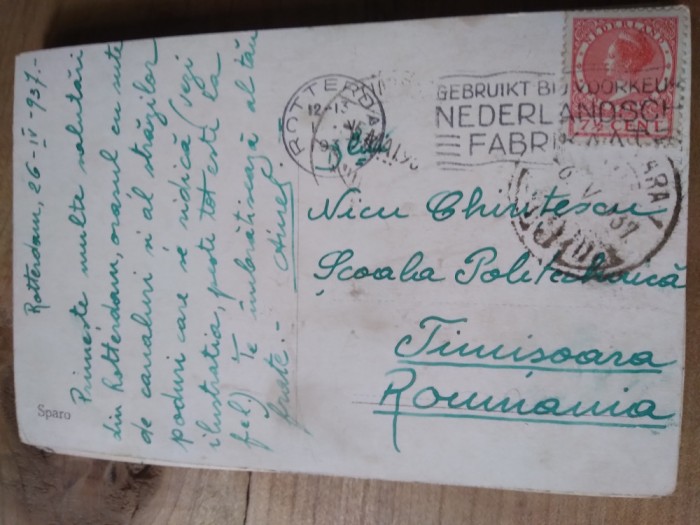 Rotterdam, 26-IV-937.-
Primește multe salutări
din Rotterdam, orașul cu sute
de canaluri și al străzilor
poduri care se ridică (vezi
ilustrația, peste tot este la
fel.) Te îmbrățișează al tău
frate.-
Sparo
ROTTERDAM
GEBRUIKT BIJ VOORKEUR
NEDERLANDSCH
FABRI
NEDERLAND
7½ CENT
Nicu Chințescu
Școala Politehnică
Timișoara
Roumania